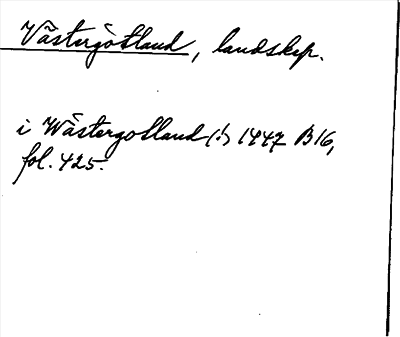 Västergötland, landskp.
i Wästergotland (!) 1447 B16,
fol. 425.